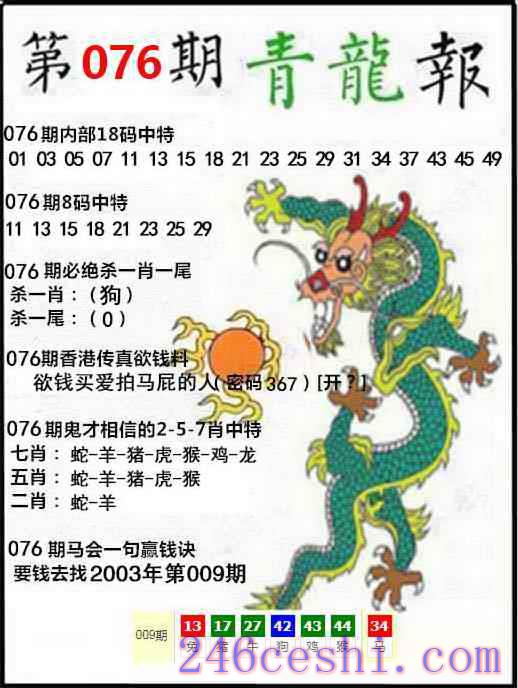 第076期青龍報
076期内部18码中特
01 03 05 07 11 13 15 18 21 23 25 29 31 34 37 43 45 49
076期8码中特
11 13 15 18 21 23 25 29
076期必绝杀一肖一尾
杀一肖：（狗）
杀一尾：（0）
076期香港传真欲钱料
欲钱买爱拍马屁的人(密码367)[开?]
076期鬼才相信的2-5-7肖中特
七肖：蛇-羊-猪-虎-猴-鸡-龙
五肖：蛇-羊-猪-虎-猴
二肖：蛇-羊
076期马会一句赢钱诀
要钱去找2003年第009期
009期 13 17 27 42 43 44 34
兔 猪 牛 狗 鸡 猴 马
246ceshi.com